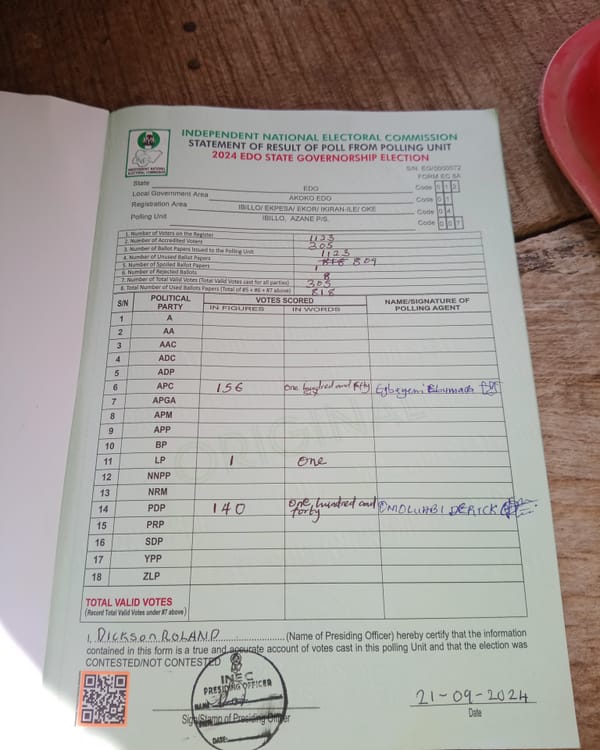 INDEPENDENT NATIONAL ELECTORAL COMMISSION
STATEMENT OF RESULT OF POLL FROM POLLING UNIT
2024 EDO STATE GOVERNORSHIP ELECTION
INDEPENDENT NATIONAL ELECTORAL COMMISSION
S/N: EG/0000072
FORM EC 8A
State EDO Code 0 1 2
Local Government Area AKOKO EDO Code 0 1
Registration Area IBILLO/ EKPESA/ EKOR/ IKIRAN-ILE/ OKE Code 0 4
Polling Unit IBILLO, AZANE P/S. Code 0 0 7
1. Number of Voters on the Register 1123
2. Number of Accredited Voters 305
3. Number of Ballot Papers Issued to the Polling Unit 1123
4. Number of Unused Ballot Papers 818 809
5. Number of Spoiled Ballot Papers 1
6. Number of Rejected Ballots 8
7. Number of Total Valid Votes (Total Valid Votes cast for all parties) 305
8. Total Number of Used Ballots Papers (Total of #5 + #6 + #7 above) 818
S/N POLITICAL PARTY VOTES SCORED NAME/SIGNATURE OF POLLING AGENT
IN FIGURES IN WORDS
1 A
2 AA
3 AAC
4 ADC
5 ADP
6 APC 156 One hundred and fifty
7 APGA
8 APM
9 APP
10 BP
11 LP 1 One
12 NNPP
13 NRM
14 PDP 140 One hundred and forty OMOLUABI DERICK
15 PRP
16 SDP
17 YPP
18 ZLP
ORIGINAL
TOTAL VALID VOTES
(Record Total Valid Votes under #7 above)
I, DICKSON ROLAND (Name of Presiding Officer) hereby certify that the information
contained in this form is a true and accurate account of votes cast in this polling Unit and that the election was
CONTESTED/NOT CONTESTED
INEC
PRESIDING OFFICER
NAME
DATE:
Sign/Stamp of Presiding Officer
21-09-2024
Date